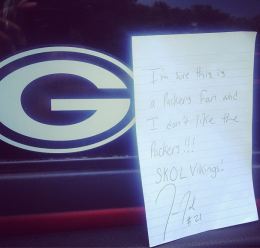 G
I'm sure this is
a Packers Fan and
I don't like the
Packers!!!
SKOL Vikings!
#21